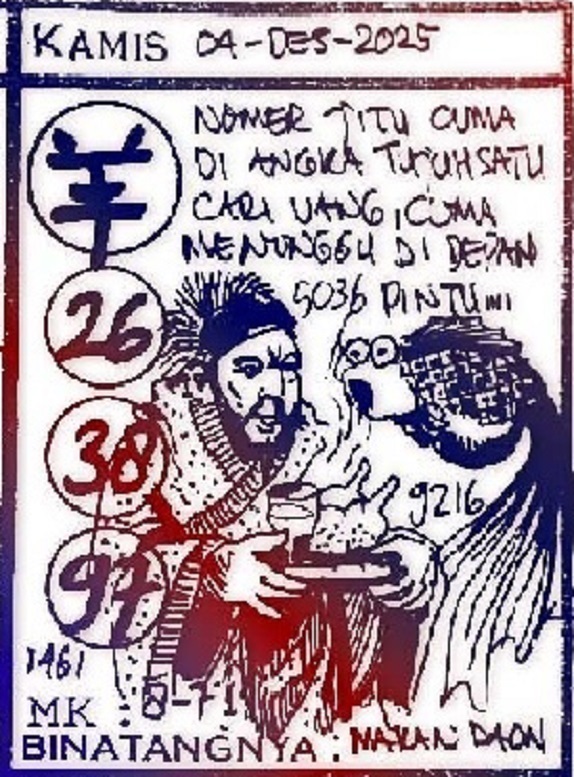 KAMIS 04-DES-2025
羊
NOMER JITU CUMA
DI ANGKA TUJUH SATU
CARI UANG, CUMA
MENUNGGU DI DEPAN
5036 PINTU
26
38
9216
97
1461
MK : 8-71
BINATANGNYA : MAKAN DAON